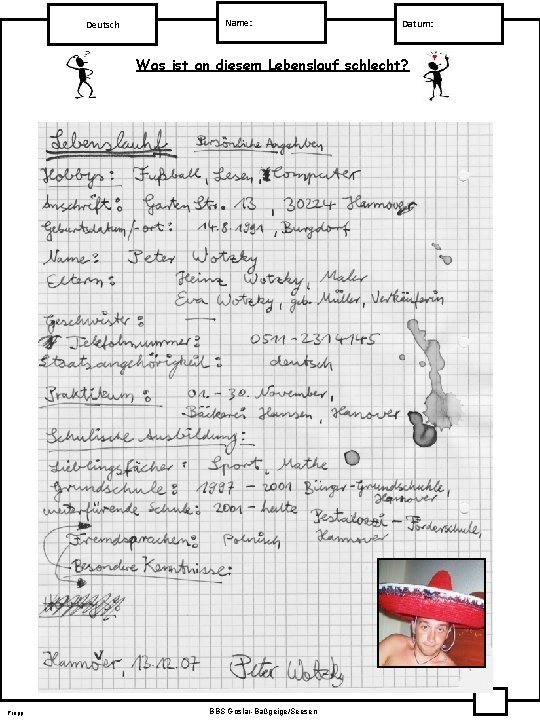 Deutsch
Name:
Datum:
Was ist an diesem Lebenslauf schlecht?
Lebenslauhf Persönliche Angehben
Hobbys: Fußball, Lesen, Computer
Anschrift: Garten Str. 13, 30224 Hannover
Geburtsdatum/-ort: 14.8.1991, Burgdorf
Name: Peter Wotzky
Eltern: Heinz Wotzky, Maler
Eva Wotzky, geb. Müller, Verkäuferin
Geschwister:
Telefohnummer: 0511-2314145
Staatsangehörigkeit: deutsch
Praktikum: 01.-30. November,
Bäckerei Hansen, Hanover
Schulische Ausbildung:
Lieblingsfächer: Sport, Mathe
Grundschule: 1997-2001 Bürger-Grundschuhle,
Hannover
weiterfürende Schule: 2001-heute Pestalozzi-Förderschule,
Hannover
Fremdsprachen: Polnisch
Besondere Kenntnisse:
Hannover, 13.12.07 Peter Wotzky
BBS Goslar-Baßgeige/Seesen